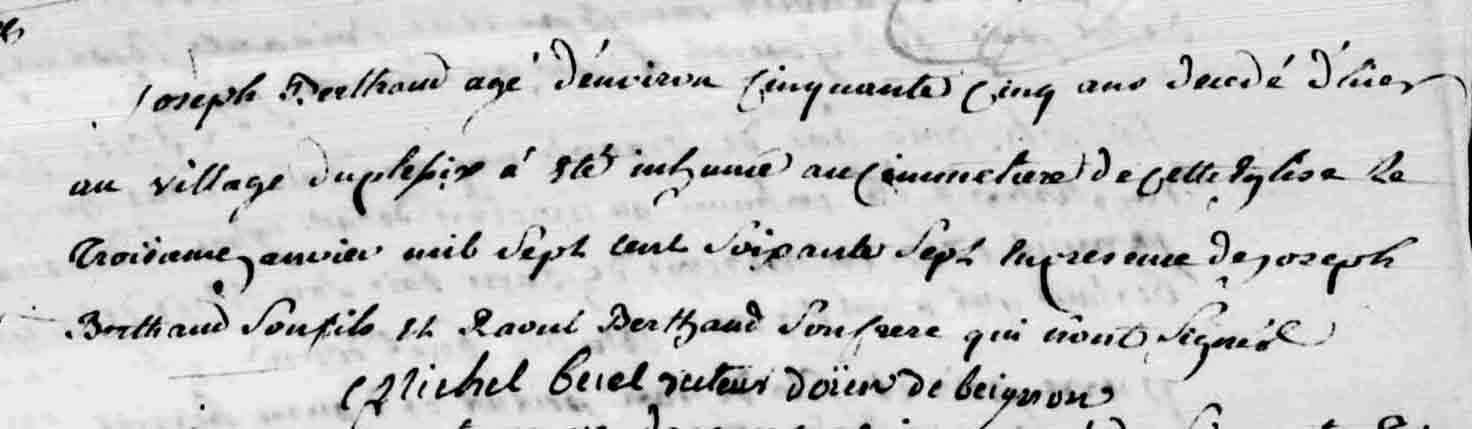 Joseph Berthaud agé d'environ Cinquante Cinq ans decedé d'hier
au village duplessix à eté inhumé au Cimmetiere de Cette Eglise Le
Troisieme janvier mil Sept Cent Soixante Sept En presence de joseph
Berthaud Son fils et Raoul Berthaud Son frere qui n'ont Signés
Michel recteur doïen de beignon